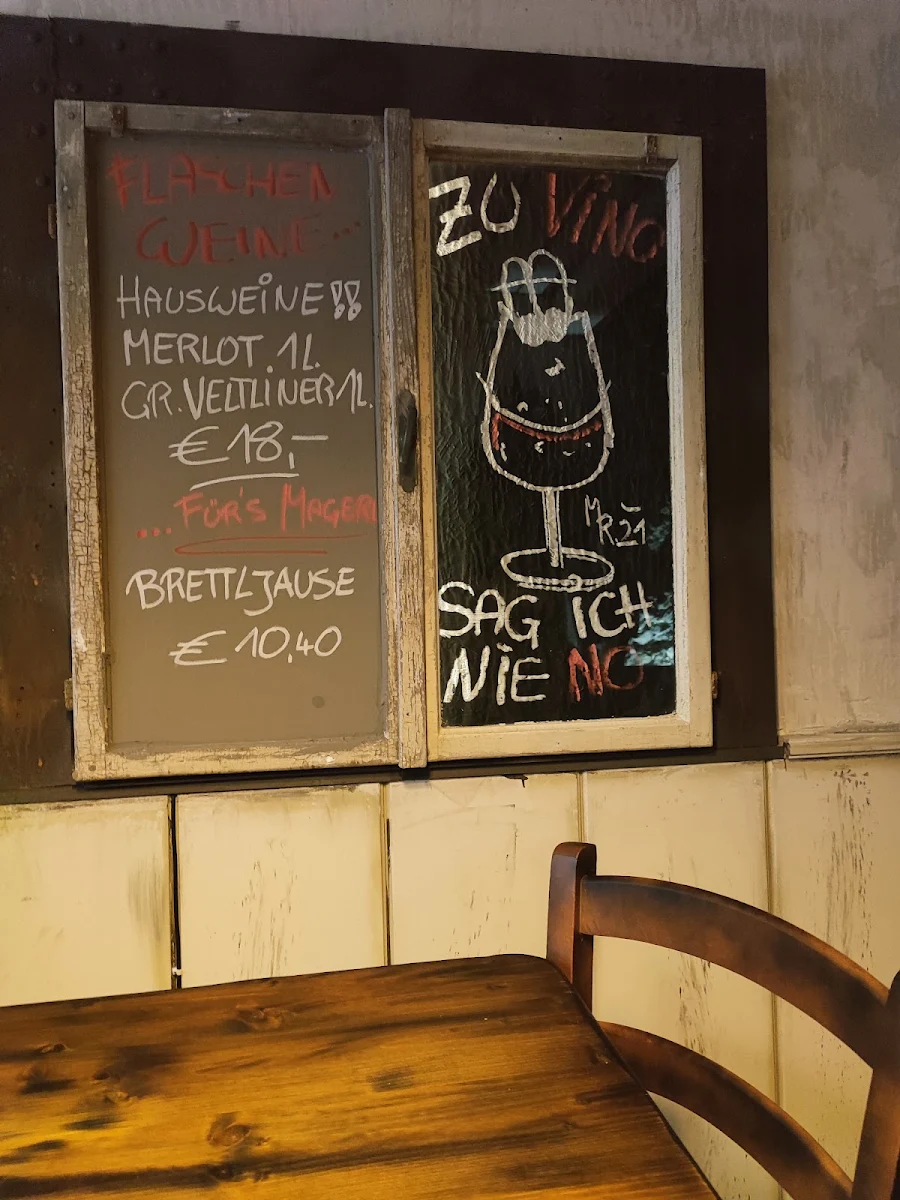 FLASCHEN
WEINE...
HAUSWEINE!!
MERLOT. 1L.
GR. VELTLINER 1L.
€ 18,-
... FÜR'S MAGERL
BRETTLJAUSE
€ 10,40
ZU VINO
MR21
SAG ICH
NIE NO